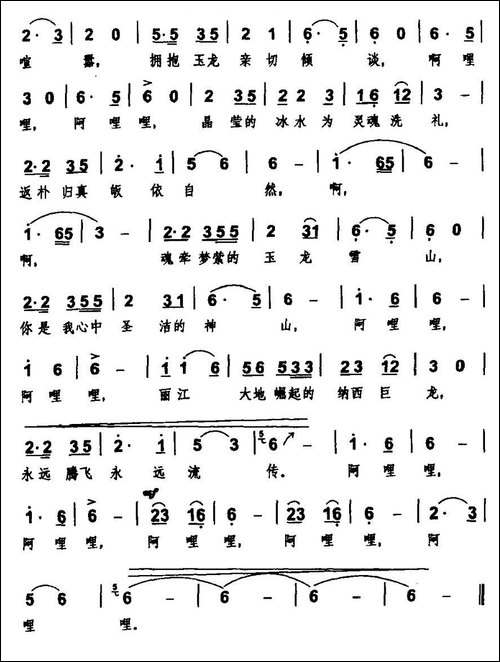 2· 3 | 2 0 | 5·5 35 | 2 1 | 6· 5 | 6 0 | 6· 5
喧 嚣, 拥抱 玉龙 亲 切 倾 谈, 啊 哩
3 0 | 6· 5 | 6 0 | 2 35 | 2·2 23 | 16 12 | 3 – |
哩, 阿 哩 哩, 晶 莹的 冰水 为 灵魂 洗 礼,
2·2 35 | 2· 1 | 5 6 | 6 – | 1· 65 | 6 – |
返朴 归真 皈 依 自 然, 啊,
1· 65 | 3 – | 2·2 355 | 2 31 | 6· 5 | 6 0 |
啊, 魂牵 梦萦的 玉 龙 雪 山,
2·2 355 | 2 31 | 6· 5 | 6 – | 1· 6 | 6 – |
你是 我心中 圣 洁的 神 山, 阿 哩 哩,
1 6 | 6 – | 1 1 6 | 56 533 | 23 12 | 3 0 |
阿 哩 哩, 丽 江 大地 崛起的 纳西 巨 龙,
2·2 35 | 2· 1 | 5 3 | 6 | 1· 6 | 6 – |
永远 腾飞 永 远 流 传。 阿 哩 哩,
1· 6 | 6 – | 23 16 | 6 – | 23 16 | 6 – | 2· 3
阿 哩 哩, 阿 哩 哩, 阿 哩 哩, 阿
5 6 | 6 – | 6 – | 6 – | 6 – ‖
哩 哩。